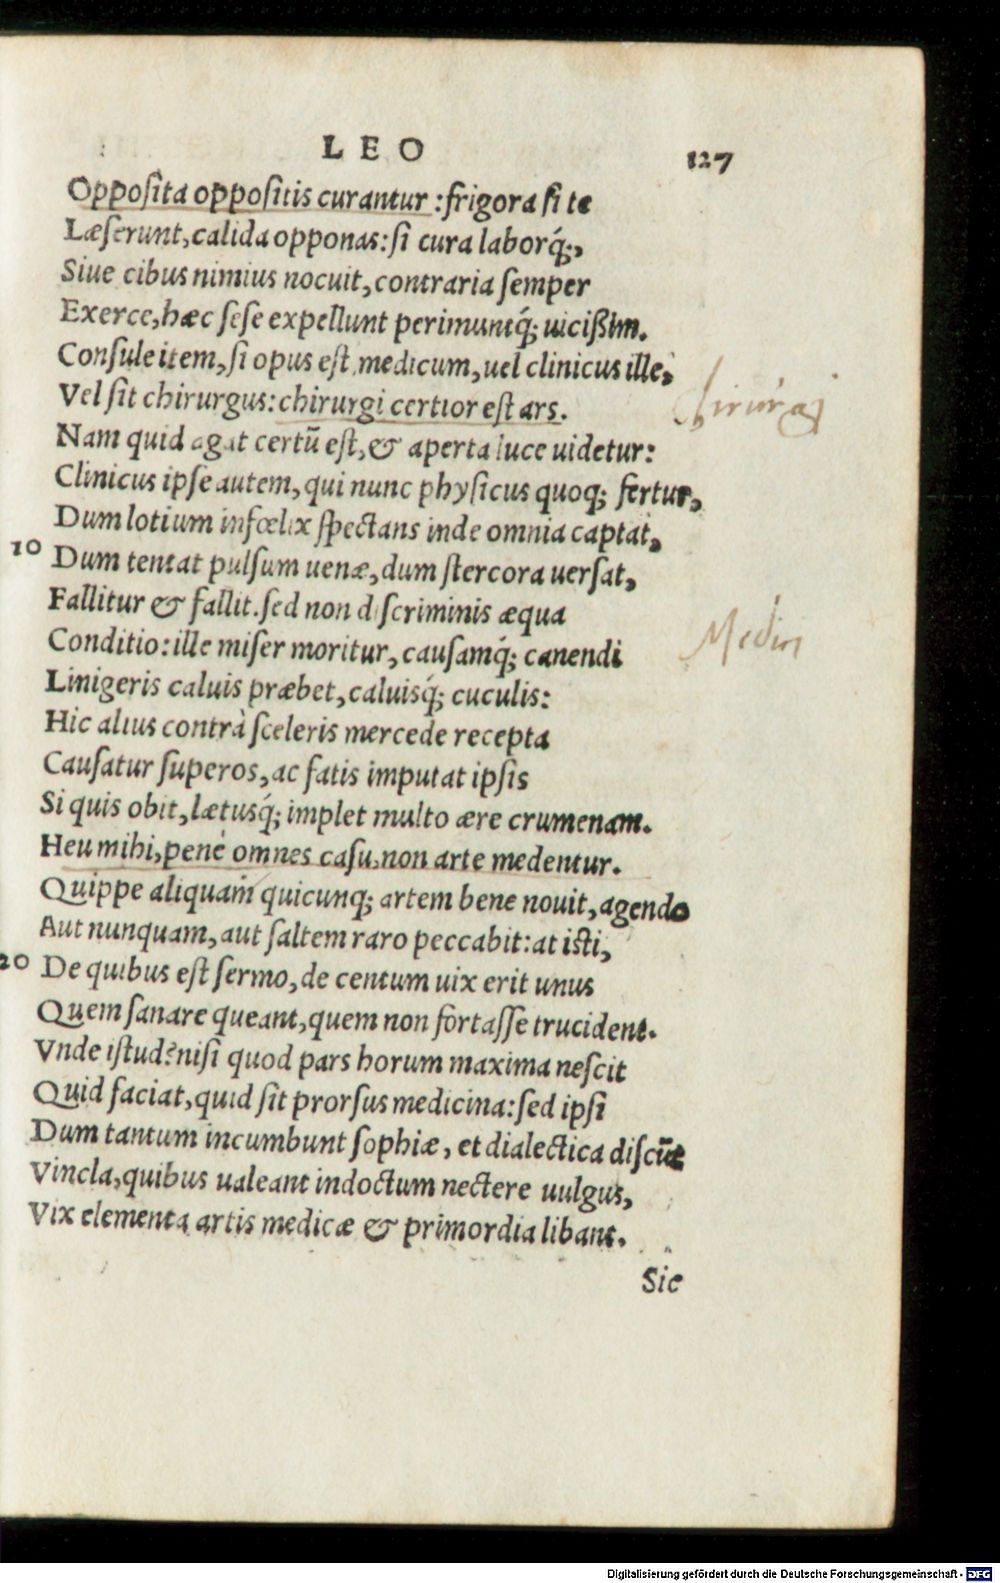 LEO
127
Opposita oppositis curantur: frigora si te
Læserunt, calida opponas: si cura laborq́;,
Siue cibus nimius nocuit, contraria semper
Exerce, hæc sese expellunt perimuntq́; uicißim.
Consule item, si opus est medicum, uel clinicus ille,
Vel sit chirurgus: chirurgi certior est ars.
Chirurgi
Nam quid agat certũ est, & aperta luce uidetur:
Clinicus ipse autem, qui nunc physicus quoq; fertur,
Dum lotium infœlix spectans inde omnia captat,
10 Dum tentat pulsum uenæ, dum stercora uersat,
Fallitur & fallit. sed non discriminis æqua
Conditio: ille miser moritur, causamq́; canendi
Medici
Linigeris caluis præbet, caluisq́; cuculis:
Hic alius contrà sceleris mercede recepta
Causatur superos, ac fatis imputat ipsis
Si quis obit, lætusq́; implet multo ære crumenam.
Heu mihi, penè omnes casu, non arte medentur.
Quippe aliquam quicunq; artem bene nouit, agendo
Aut nunquam, aut saltem raro peccabit: at isti,
20 De quibus est sermo, de centum uix erit unus
Quem sanare queant, quem non fortasse trucident.
Vnde istud? nisi quod pars horum maxima nescit
Quid faciat, quid sit prorsus medicina: sed ipsi
Dum tantum incumbunt sophiæ, et dialectica discũt
Vincla, quibus ualeant indoctum nectere uulgus,
Vix elementa artis medicæ & primordia libant.
Sic
Digitalisierung gefördert durch die Deutsche Forschungsgemeinschaft - DFG